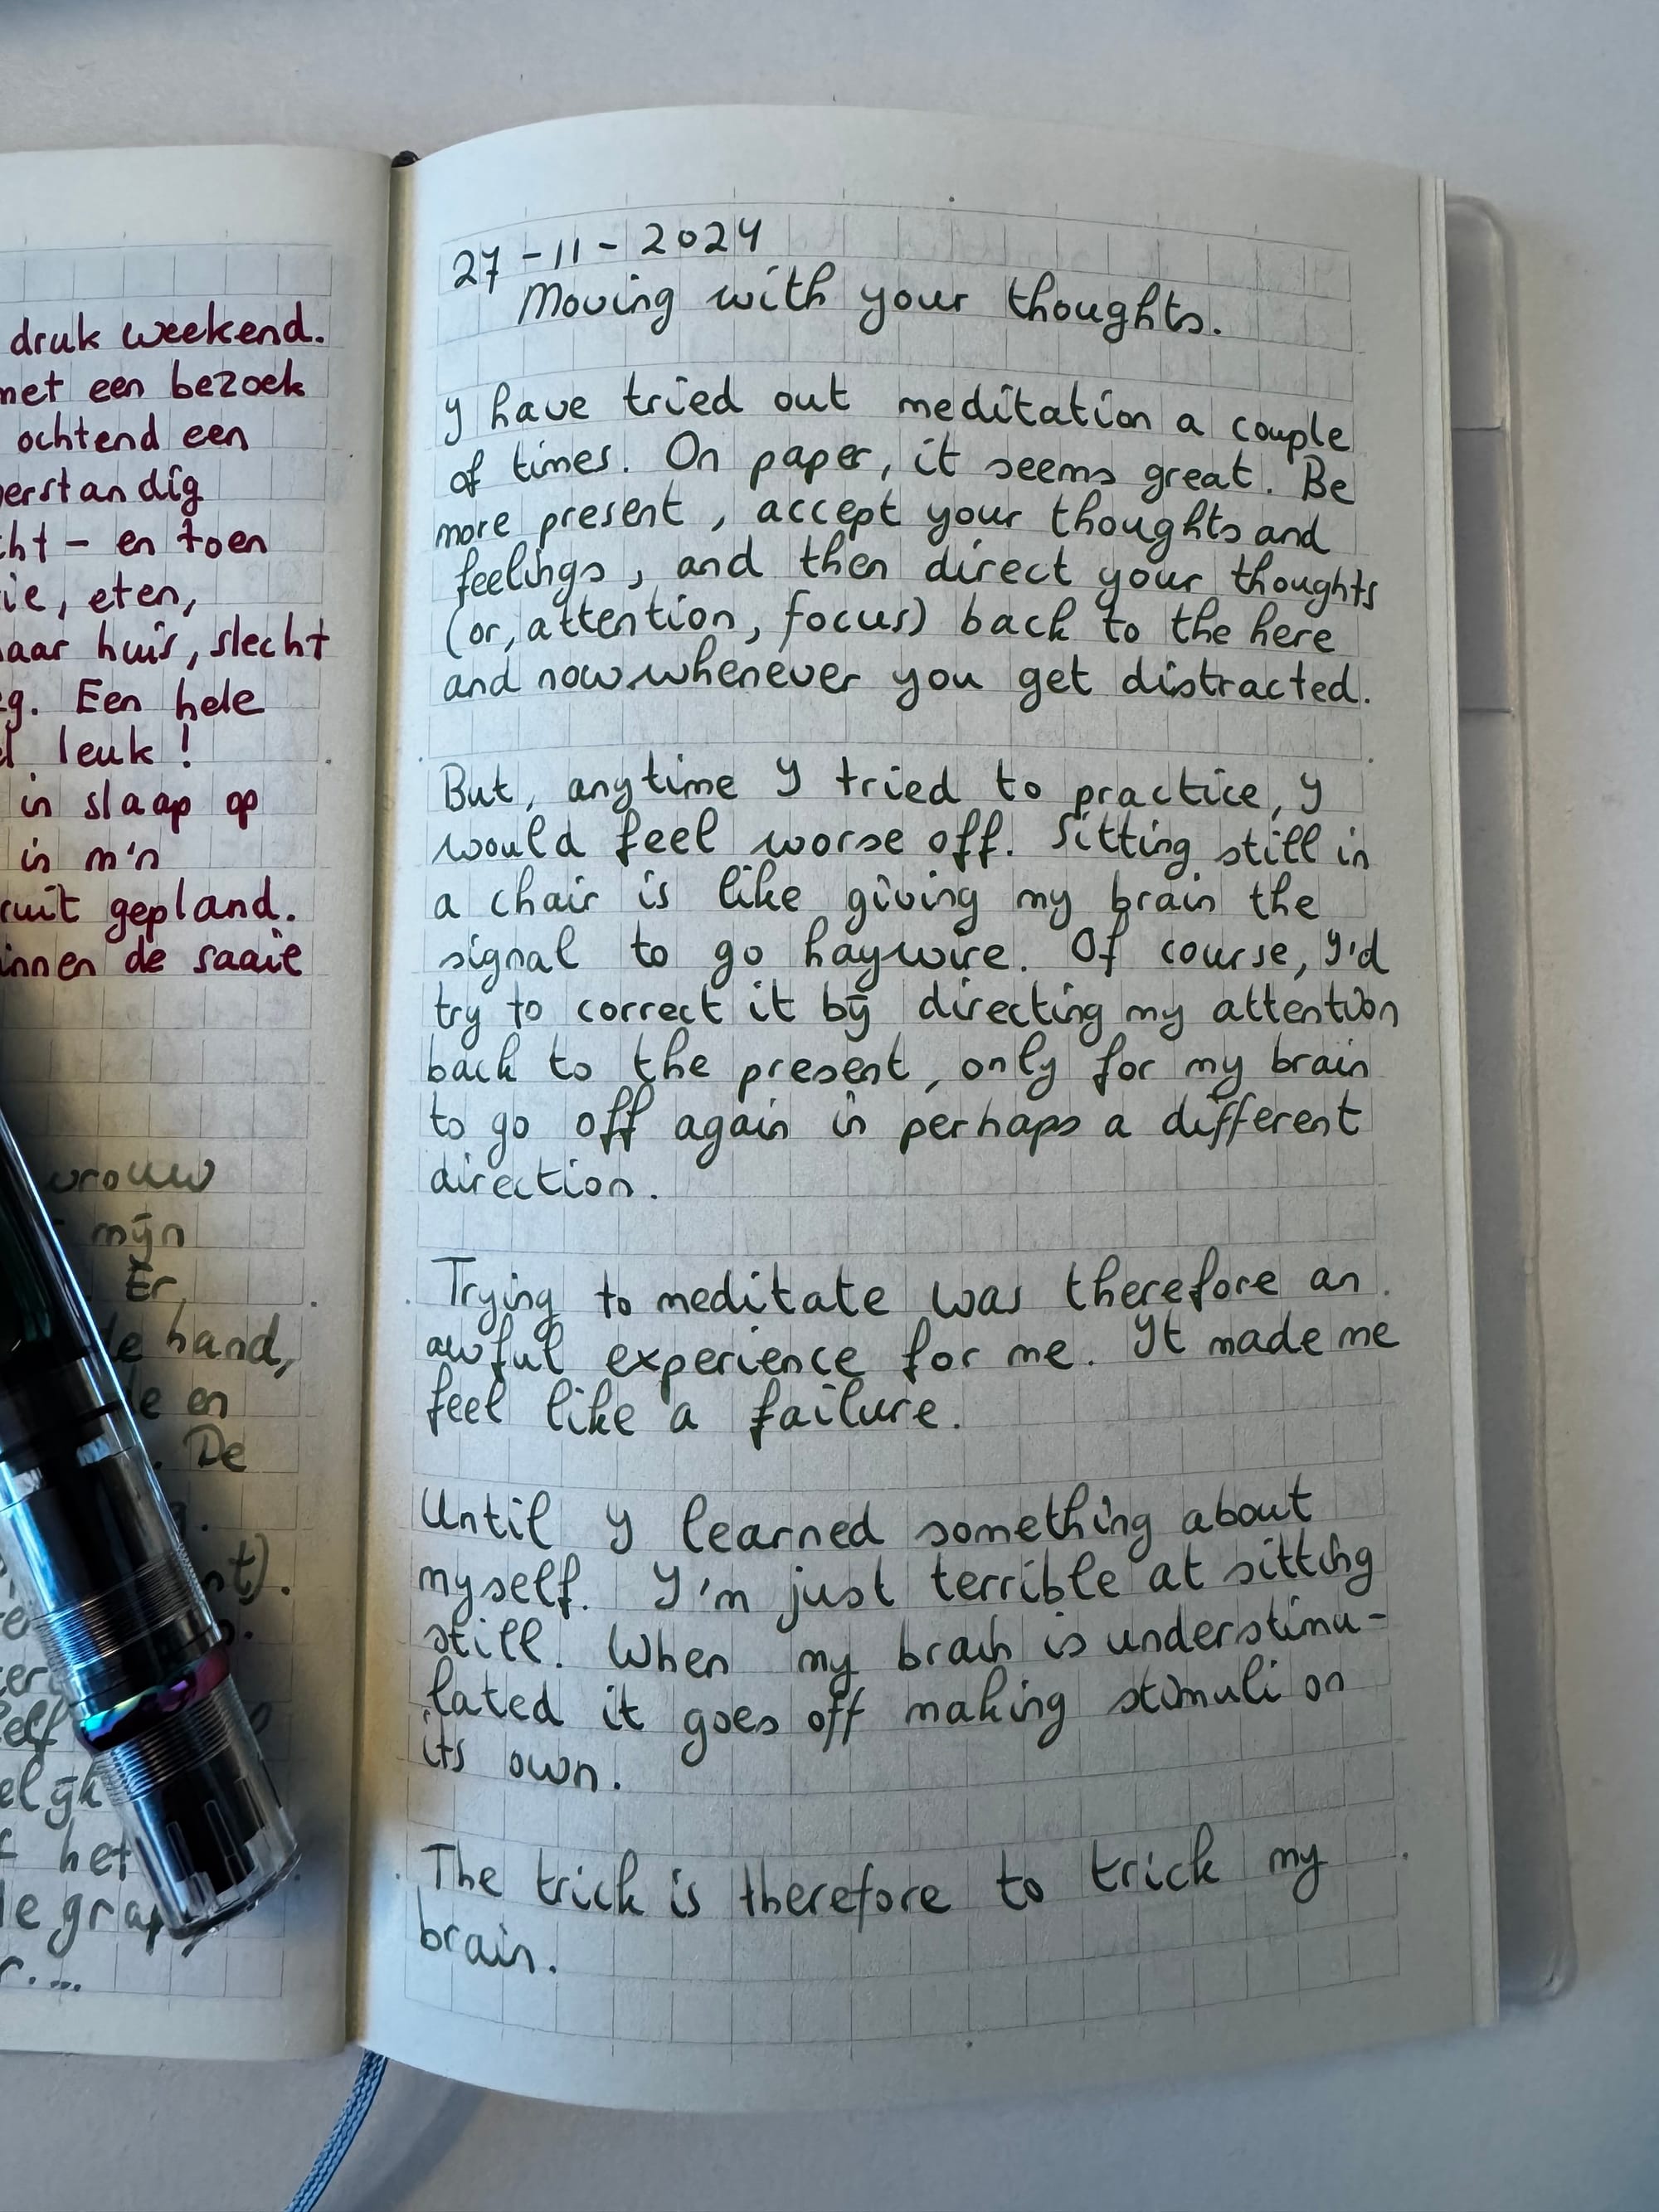 druk weekend.
met een bezoek
ochtend een
en toen
eten,
huis, slecht
Een hele
leuk!
in slaap op
in m'n
gepland.
de saaie
vrouw
mijn
Er
hand,
en
De
het
27-11-2024
Moving with your thoughts.
I have tried out meditation a couple
of times. On paper, it seems great. Be
more present, accept your thoughts and
feelings, and then direct your thoughts
(or, attention, focus) back to the here
and now whenever you get distracted.
But, anytime I tried to practice, I
would feel worse off. Sitting still in
a chair is like giving my brain the
signal to go haywire. Of course, I'd
try to correct it by directing my attention
back to the present, only for my brain
to go off again in perhaps a different
direction.
Trying to meditate was therefore an
awful experience for me. It made me
feel like a failure.
Until I learned something about
myself. I'm just terrible at sitting
still. When my brain is understimu-
lated it goes off making stimuli on
its own.
The trick is therefore to trick my
brain.